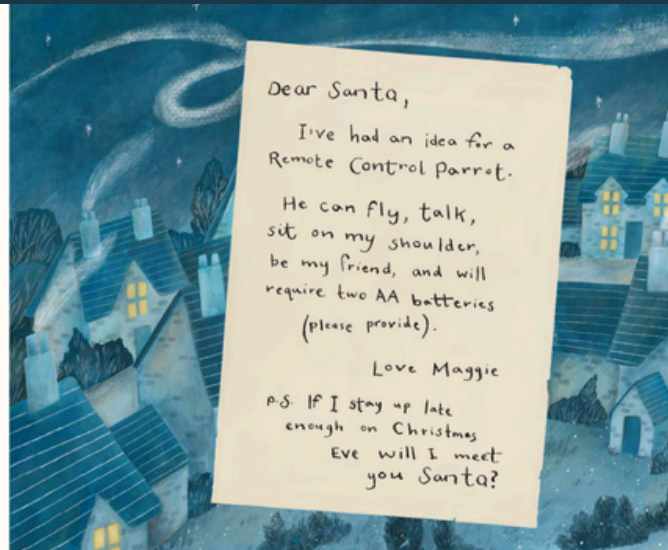 Dear Santa,
I've had an idea for a
Remote Control Parrot.
He can fly, talk,
sit on my shoulder,
be my friend, and will
require two AA batteries
(please provide).
Love Maggie
p.S. If I stay up late
enough on Christmas
Eve will I meet
you Santa?